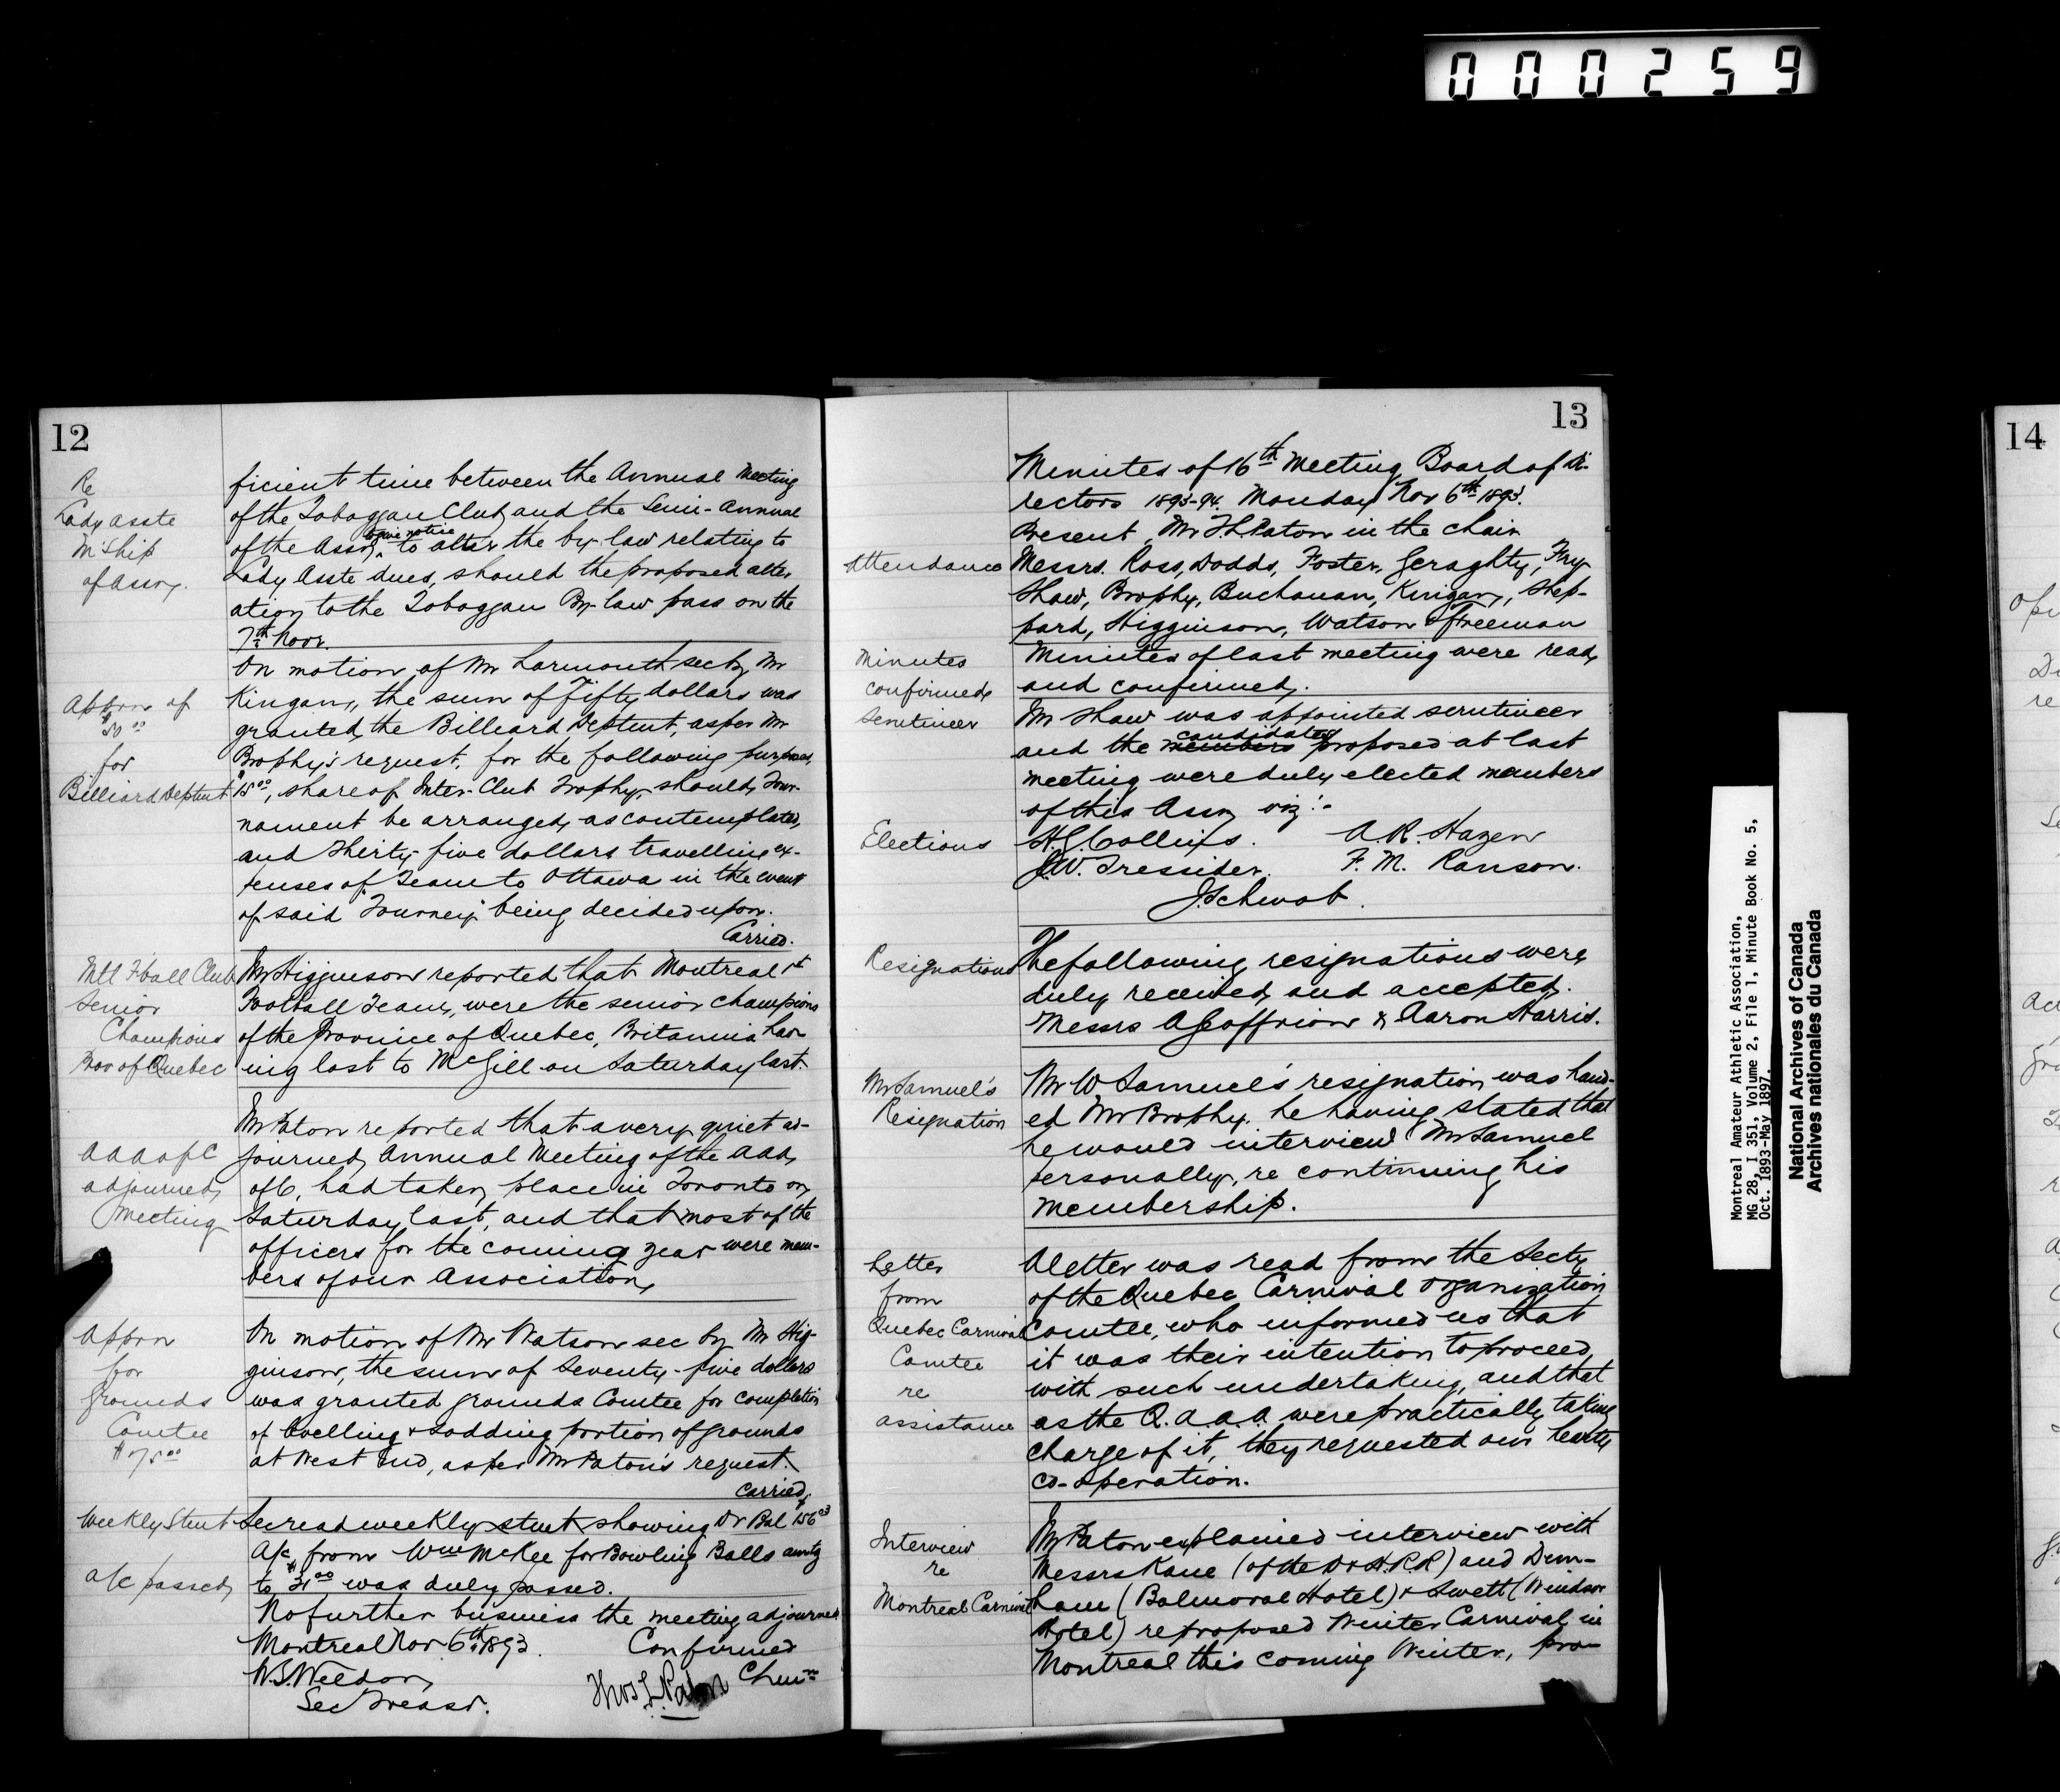 000259
12
Re
Lady Asste
M'Ship
of Assn.
ficient time between the Annual Meeting
of the Toboggan Club and the Semi-Annual
of the Assn, to give notice to alter the by-law relating to
Lady Asste dues, should the proposed alter
ation to the Toboggan By-law pass on the
7th Novr.
Apprn of
$50 00
for
Billiard Deptmt
On motion of Mr Larmonth sec by Mr
Kingan, the sum of Fifty dollars was
granted the Billiard Deptmt, as per Mr
Brophy's request, for the following purposes,
$15 00, share of Inter-Club Trophy, should Tour-
nament be arranged, as contemplated,
and Thirty-five dollars travelling ex-
penses of Team to Ottawa in the event
of said "Tourney" being decided upon.
Carried.
Mtl Fball Club
Senior
Champions
Prov of Quebec
Mr Higginson reported that Montreal 1st
Football Team, were the senior champions
of the Province of Quebec, Britannia hav-
ing lost to McGill on Saturday last.
A A A of C
adjourned
Meeting
Mr Paton reported that a very quiet ad-
journed Annual Meeting of the AAA
of C, had taken place in Toronto on
Saturday last, and that most of the
officers for the coming year were mem-
bers of our Association
Apprn
for
Grounds
Comtee
$75 00
On motion of Mr Watson sec by Mr Hig-
ginson, the sum of Seventy-five dollars
was granted Grounds Comtee for completion
of levelling & sodding portion of grounds
at West End, as per Mr Paton's request.
Carried,
Weekly Stmt
Sec read weekly stmt showing Dr Bal $156 03
a/c passed
A/c from Wm McKee for Bowling Balls amtg
to $31 00 was duly passed.
No further business the meeting adjourned
Montreal Nov 6th 1893. Confirmed
W.S. Weldon, Thos L. Paton Chmn
Sec Treasr.
13
Minutes of 16th Meeting Board of Di-
rectors 1893-94. Monday Nov 6th 1893.
Present, Mr T.L. Paton in the chair
Attendance
Messrs. Ross, Dodds, Foster, Geraghty, Fry,
Shaw, Brophy, Buchanan, Kingan, Shep-
pard, Higginson, Watson & Freeman
Minutes
confirmed
Minutes of last meeting were read,
and confirmed.
Scrutineer
Mr Shaw was appointed scrutineer
and the members candidates proposed at last
meeting were duly elected members
of this Assn viz:-
Elections
H.G. Collins. A.R. Hazen
J.W. Tressider. F.M. Ranson.
J. Schwob.
Resignations
The following resignations were
duly received and accepted.
Messrs A Geoffrion & Aaron Harris.
Mr Samuel's
Resignation
Mr W Samuel's resignation was hand-
ed Mr Brophy, he having stated that
he would interview Mr Samuel
personally, re continuing his
membership.
Letter
from
Quebec Carnival
Comtee
re
assistance
A letter was read from the Secty
of the Quebec Carnival Organization
Comtee, who informed us that
it was their intention to proceed
with such undertaking, and that
as the Q.A.A.A. were practically taking
charge of it, they requested our hearty
co-operation.
Interview
re
Montreal Carnival
Mr Paton explained interview with
Messrs Kane (of the D & H.R.R) and Dun-
ham (Balmoral Hotel) & Swett (Windsor
Hotel) re proposed Winter Carnival in
Montreal this coming Winter, pro-
Montreal Amateur Athletic Association,
MG 28, I 351, Volume 2, File 1, Minute Book No. 5,
Oct. 1893-May 1897.
National Archives of Canada
Archives nationales du Canada
14